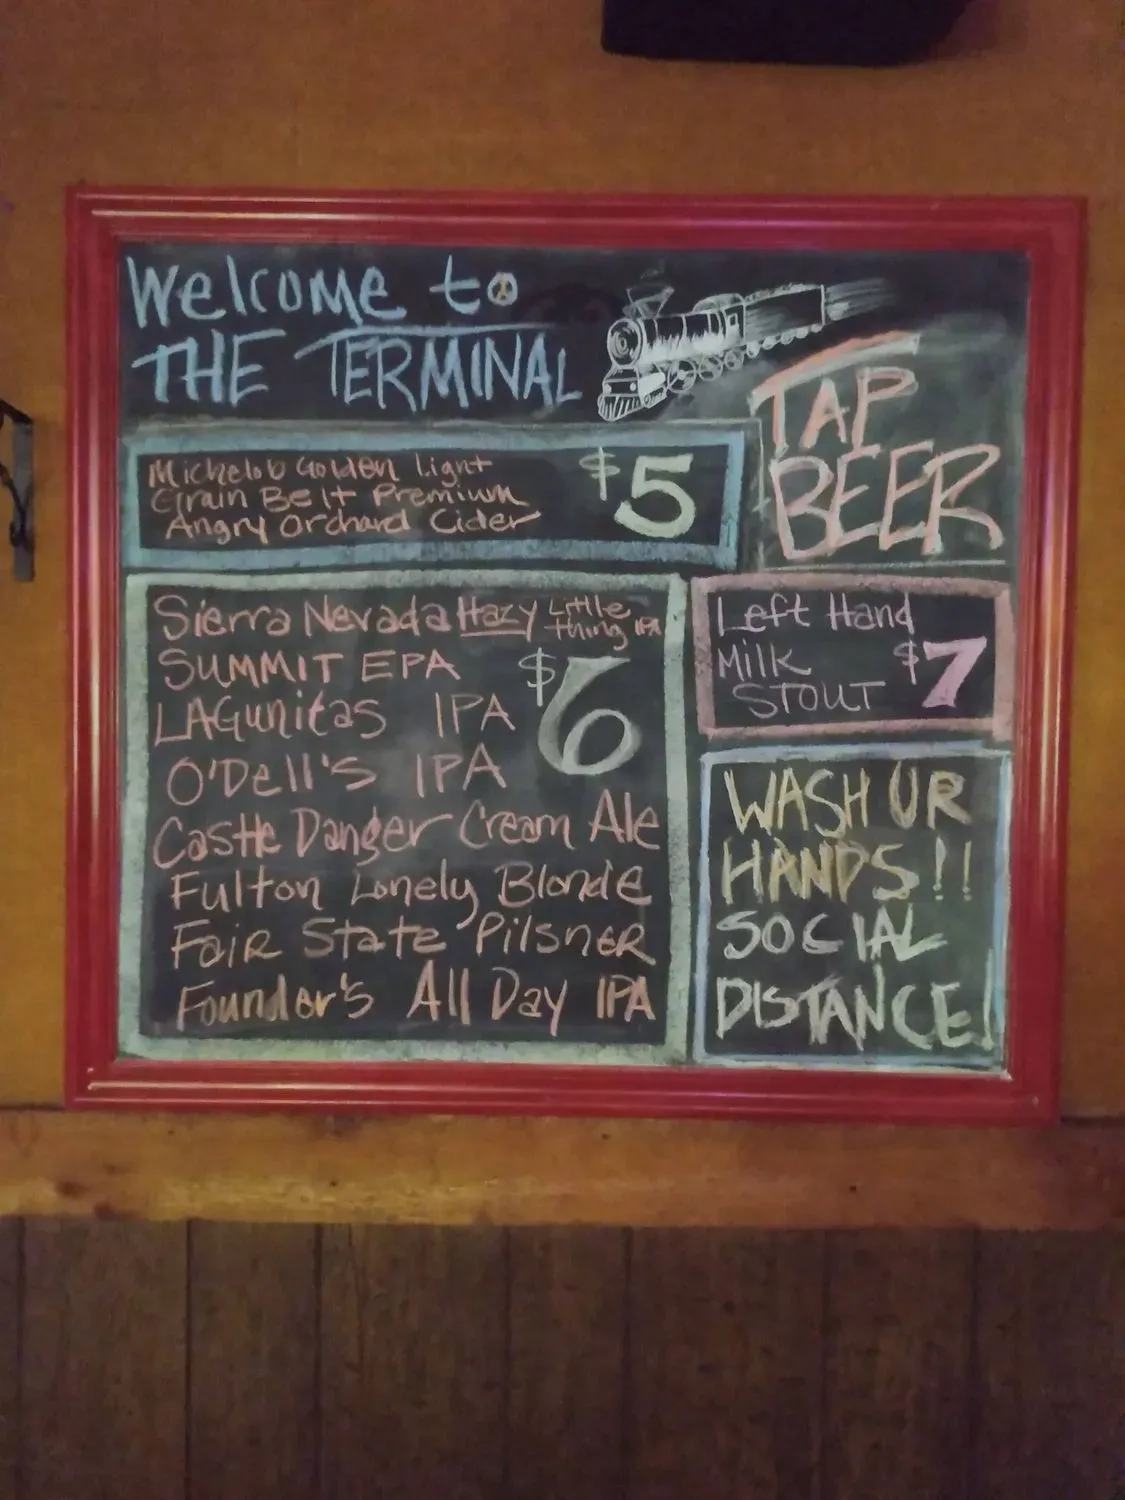 Welcome to
THE TERMINAL
TAP
BEER
Michelob Golden Light
Grain Belt Premium
Angry Orchard Cider
$5
Sierra Nevada Hazy Little Thing IPA
SUMMIT EPA
LAGunitas IPA
O'Dell's IPA
Castle Danger Cream Ale
Fulton Lonely Blonde
Fair State Pilsner
Founder's All Day IPA
$6
Left Hand
Milk
STOUT
$7
WASH UR
HANDS!!
SOCIAL
DISTANCE!